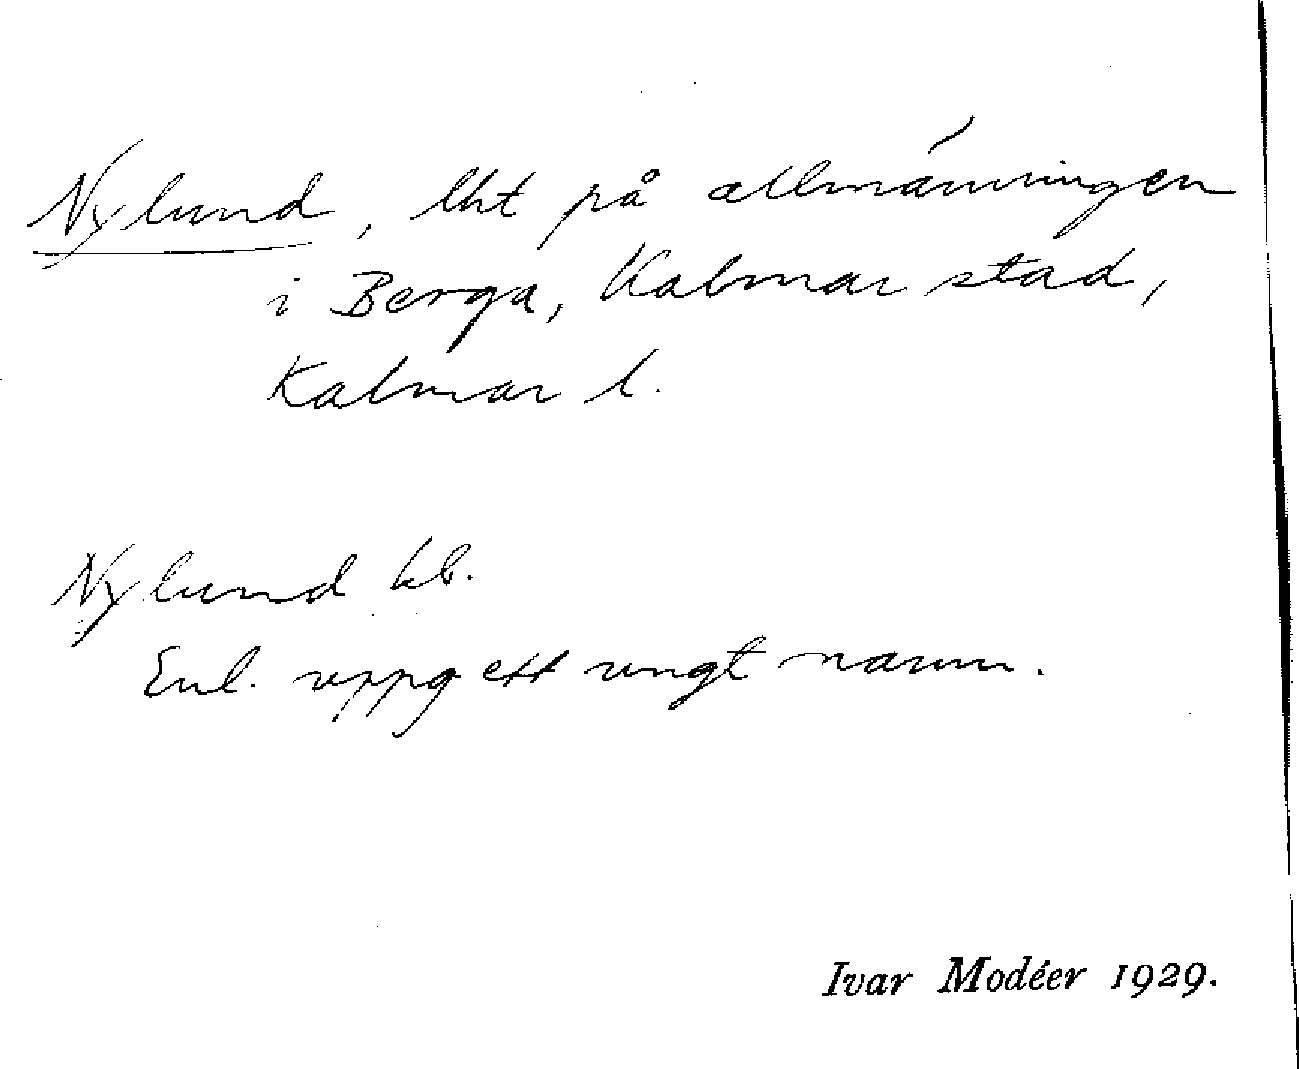 Nylund, lht på allmänningen
i Berga, Kalmar stad,
Kalmar l.
Nylund kb.
Enl. uppg ett ungt namn.
Ivar Modéer 1929.